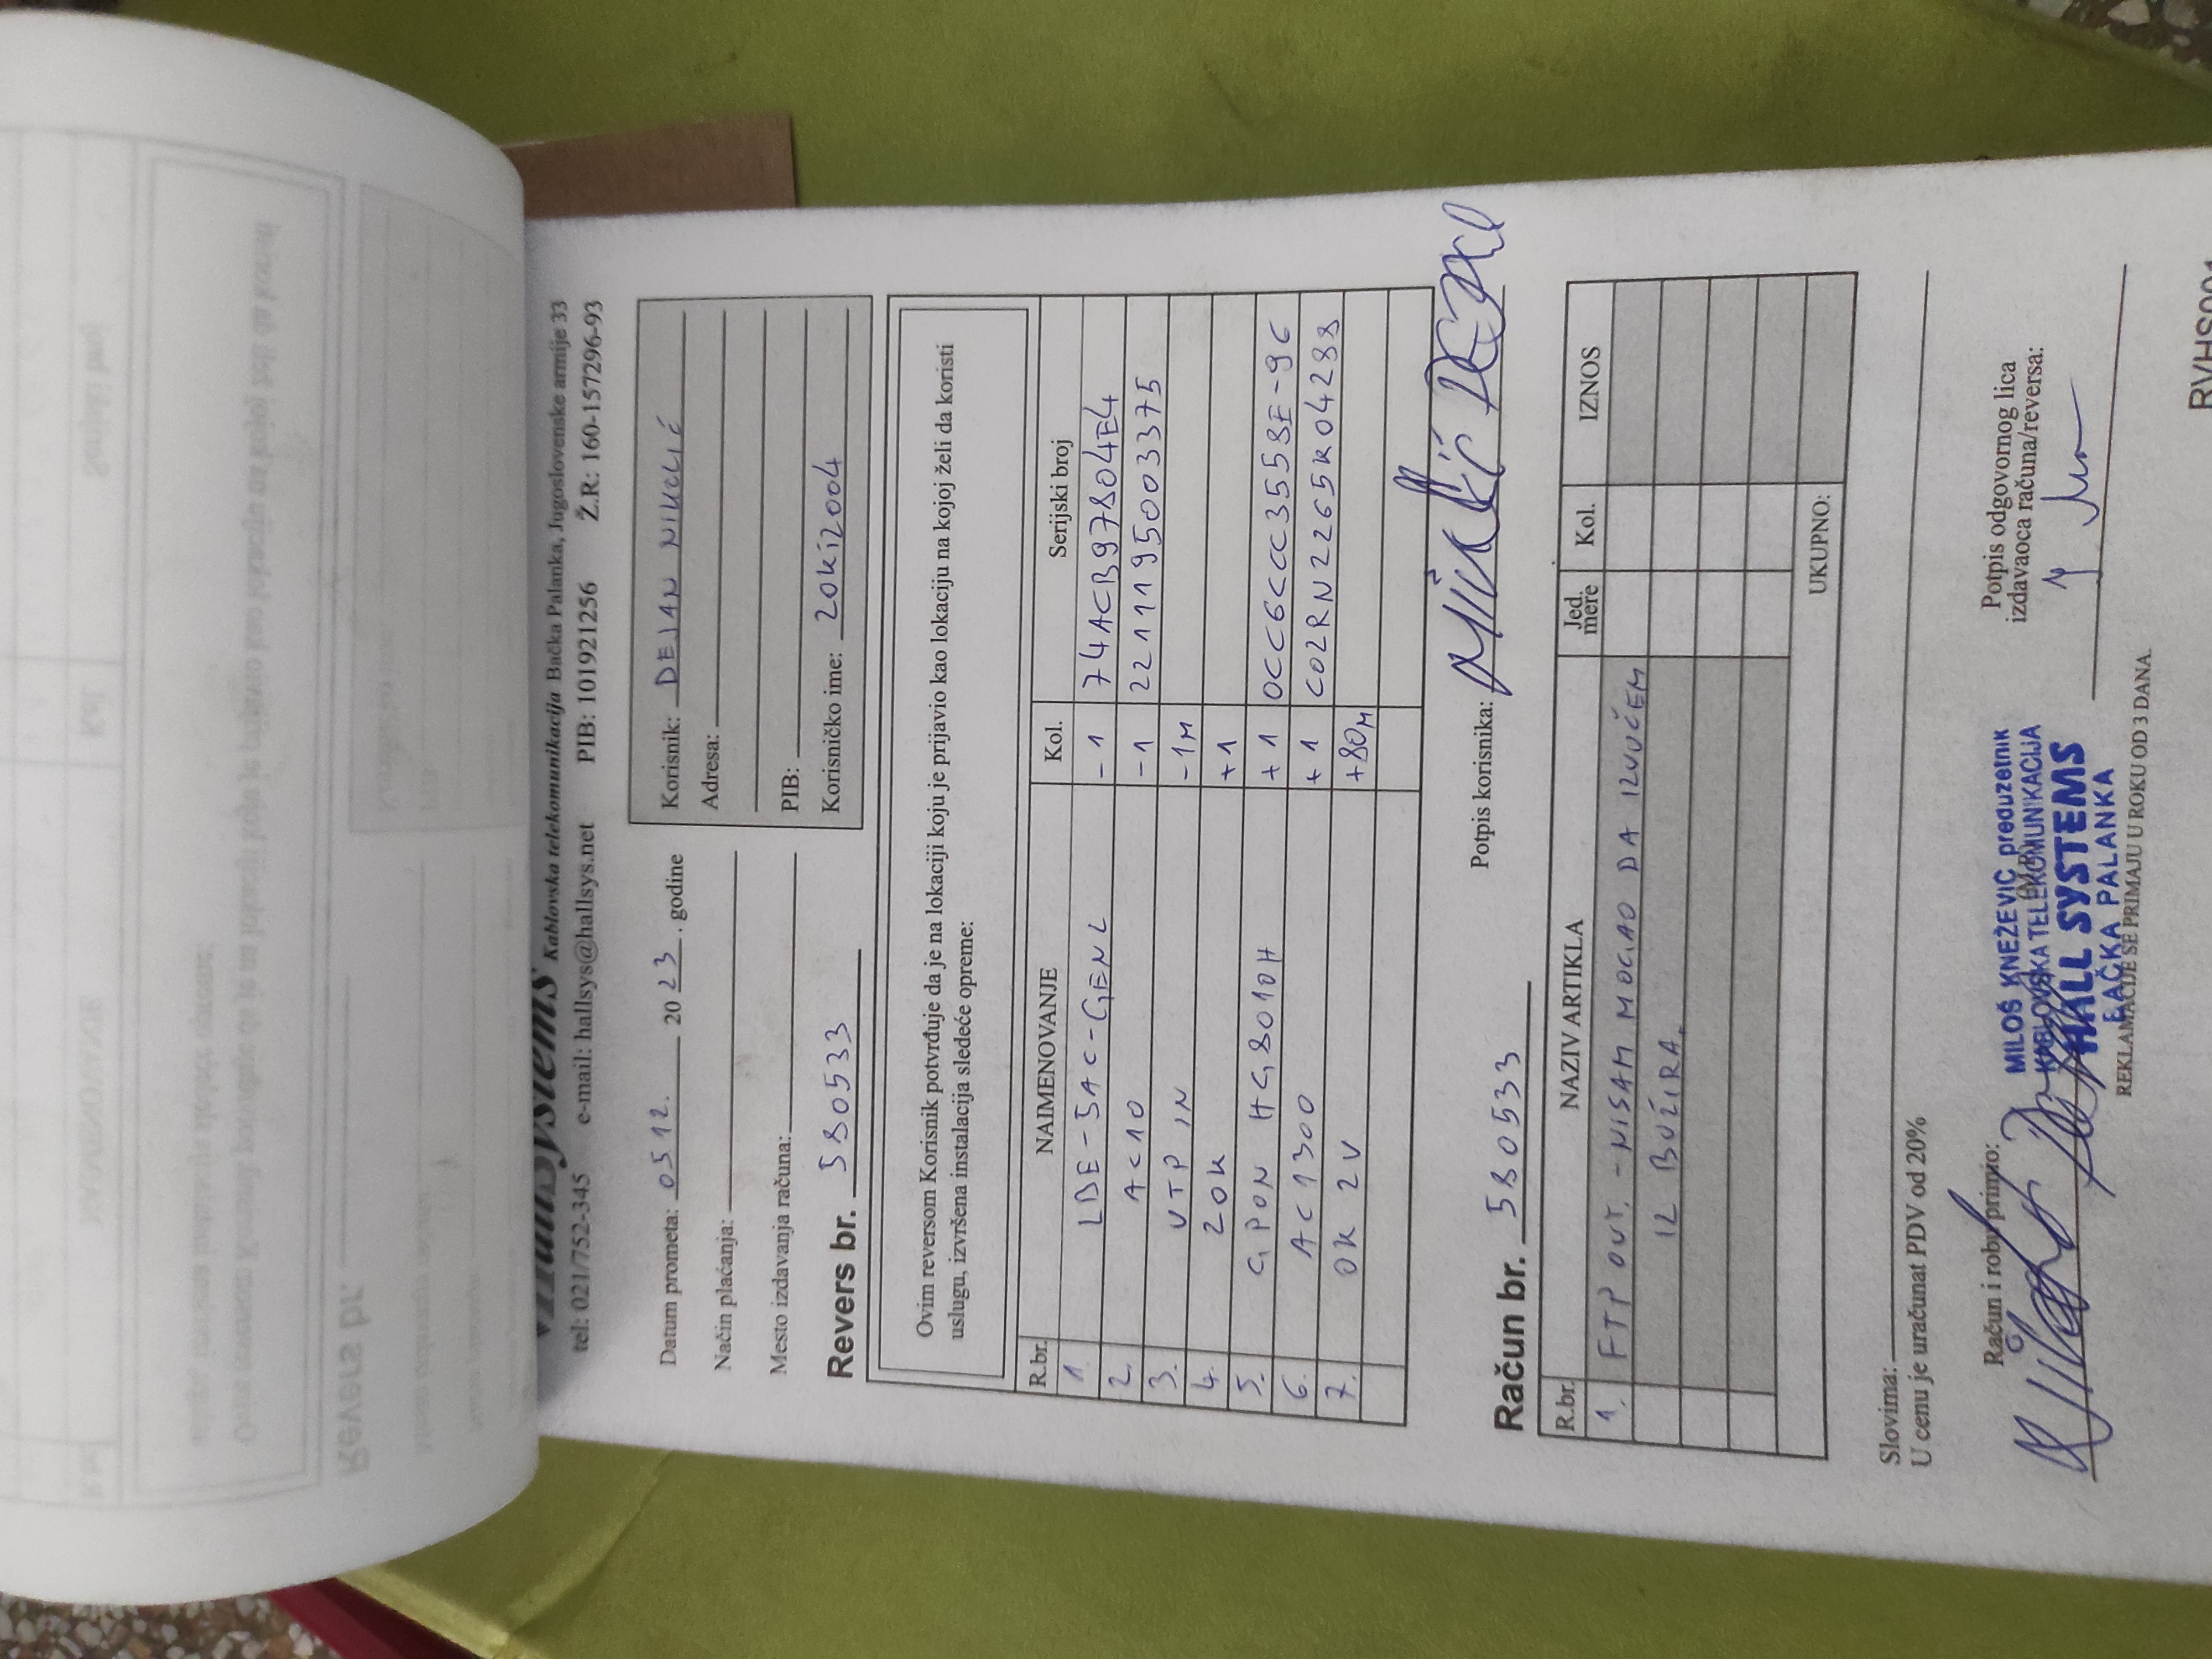 Hallsystems Kablovska telekomunikacija Bačka Palanka, Jugoslovenske armije 33
tel: 021/752-345 e-mail: hallsys@hallsys.net PIB: 101921256 Ž.R: 160-157296-93
Datum prometa: 05 12. 2023. godine
Način plaćanja:
Mesto izdavanja računa:
Korisnik: DEJAN NIKOLIĆ
Adresa:
PIB:
Korisničko ime:
Revers br. 580533
Ovim reversom Korisnik potvrđuje da je na lokaciji koju je prijavio kao lokaciju na kojoj želi da koristi
uslugu, izvršena instalacija sledeće opreme:
R.br. NAIMENOVANJE Kol. Serijski broj
1. LBE-5AC-GEN2 -1 74ACB97804E4
2. AC10 -1
3. UTP IN -1M
4. ZOK +1
5. GPON HG8010H +1
6. AC1300 +1
7. OK 2V +80M
Potpis korisnika:
Račun br. 580533
R.br. NAZIV ARTIKLA Jed. mere Kol. IZNOS
1. FTP OUT. - NISAM MOGAO DA IZVUČEM
IZ BUŽIRA.
UKUPNO:
Slovima:
U cenu je uračunat PDV od 20%
Račun i robu primio:
MILOŠ KNEŽEVIĆ preduzetnik
KABLOVSKA TELEKOMUNIKACIJA
HALL SYSTEMS
BAČKA PALANKA
Potpis odgovornog lica
izdavaoca računa/reversa:
REKLAMACIJE SE PRIMAJU U ROKU OD 3 DANA.